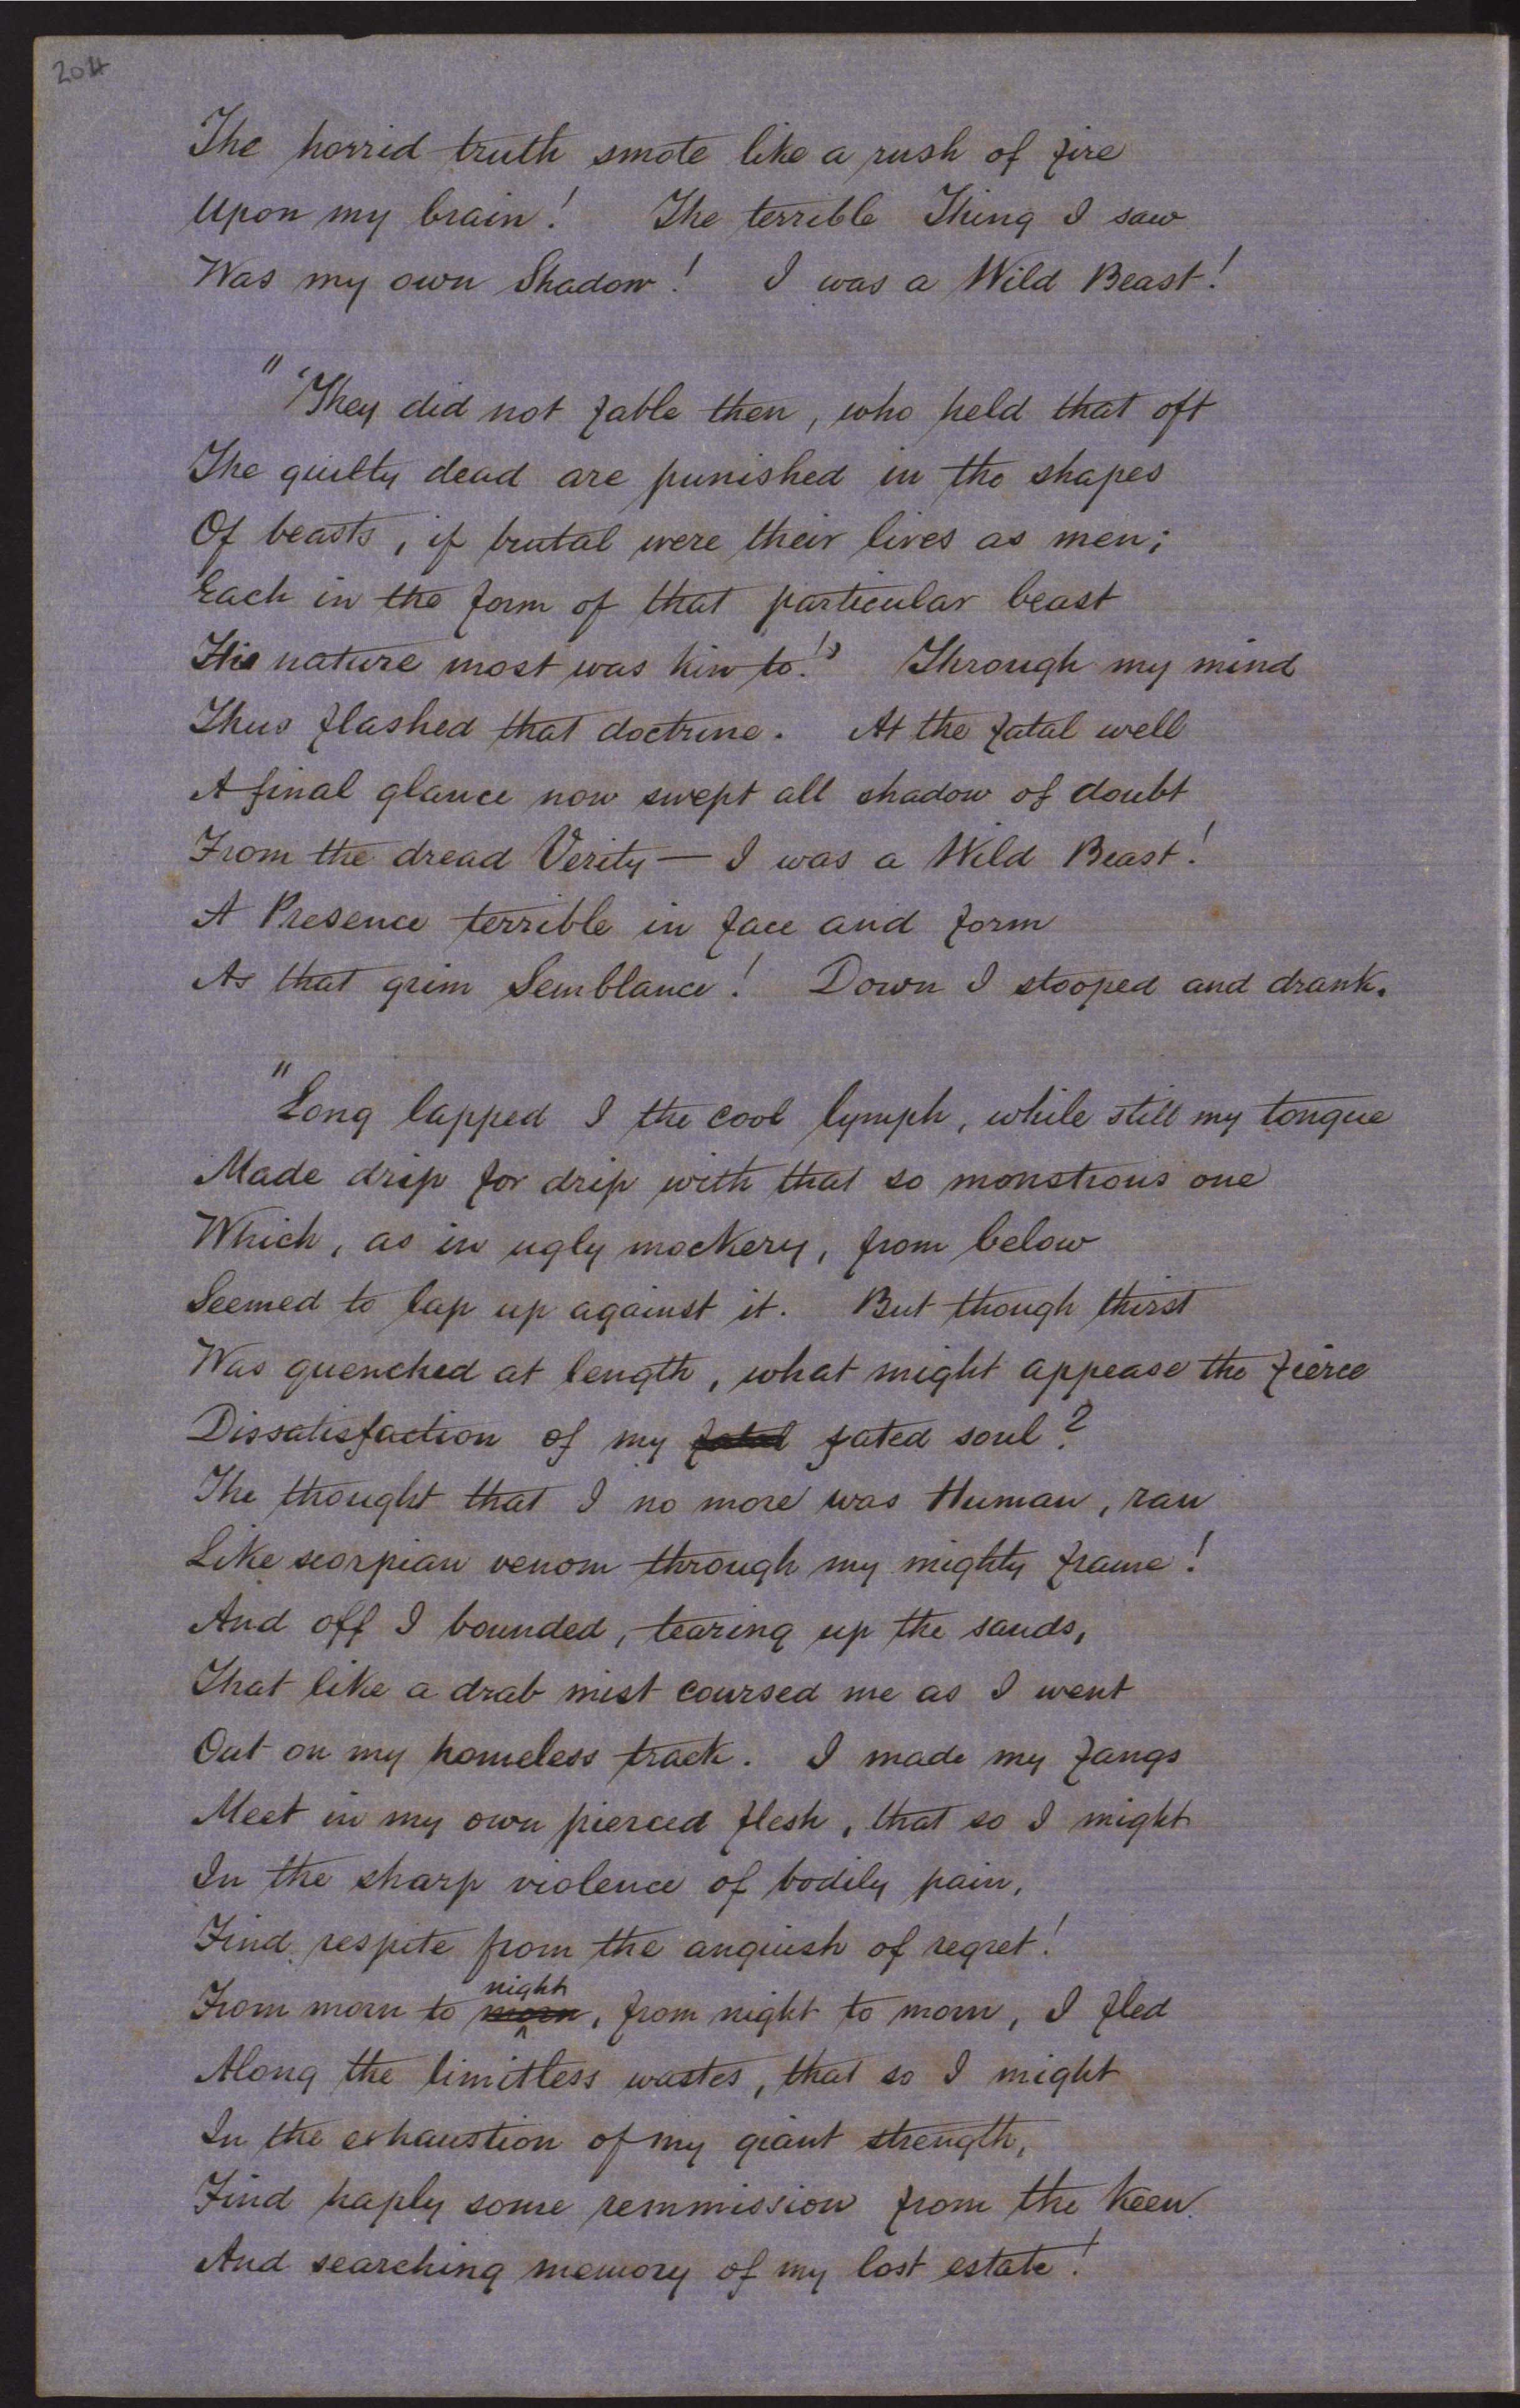 204
The horrid truth smote like a rush of fire
Upon my brain! The terrible Thing I saw
Was my own Shadow! I was a Wild Beast!
"'They did not fable then, who held that oft
The guilty dead are punished in the shapes
Of beasts, if brutal were their lives as men;
Each in the form of that particular beast
His nature most was kin to!' Through my mind
Thus flashed that doctrine. At the fatal well
A final glance now swept all shadow of doubt
From the dread Verity — I was a Wild Beast!
A Presence terrible in face and form
As that grim Semblance! Down I stooped and drank.
"Long lapped I the cool lymph, while still my tongue
Made drip for drip with that so monstrous one
Which, as in ugly mockery, from below
Seemed to lap up against it. But though thirst
Was quenched at length, what might appease the fierce
Dissatisfaction of my fatal fated soul?
The thought that I no more was Human, ran
Like scorpian venom through my mighty frame!
And off I bounded, tearing up the sands,
That like a drab mist coursed me as I went
Out on my homeless track. I made my fangs
Meet in my own pierced flesh, that so I might
In the sharp violence of bodily pain,
Find respite from the anguish of regret!
night
From morn to morn, from night to morn, I fled
Along the limitless wastes, that so I might
In the exhaustion of my giant strength,
Find haply some remmission from the keen
And searching memory of my lost estate!